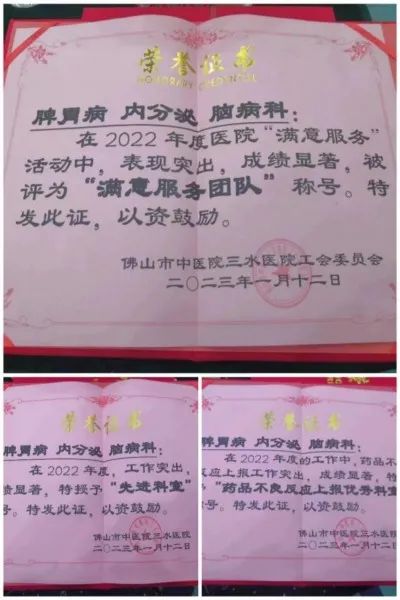 荣誉证书
HONORARY CREDENTIAL
脾胃病 内分泌 脑病科：
在2022年度医院“满意服务”
活动中，表现突出，成绩显著，被
评为“满意服务团队”称号。特
发此证，以资鼓励。
佛山市中医院三水医院工会委员会
二〇二三年一月十二日
荣誉证书
脾胃病 内分泌 脑病科：
在2022年度，工作突出，
绩显著，特授予“先进科室”
号。特发此证，以资鼓励。
佛山市中医院三水医院
二〇二三年一月十二日
荣誉证书
脾胃病 内分泌 脑病科：
在2022年度的工作中，药品不
反应上报工作突出，成绩显著，特
“药品不良反应上报优秀科室
号。特发此证，以资鼓励。
佛山市中医院三水医院
二〇二三年一月十二日